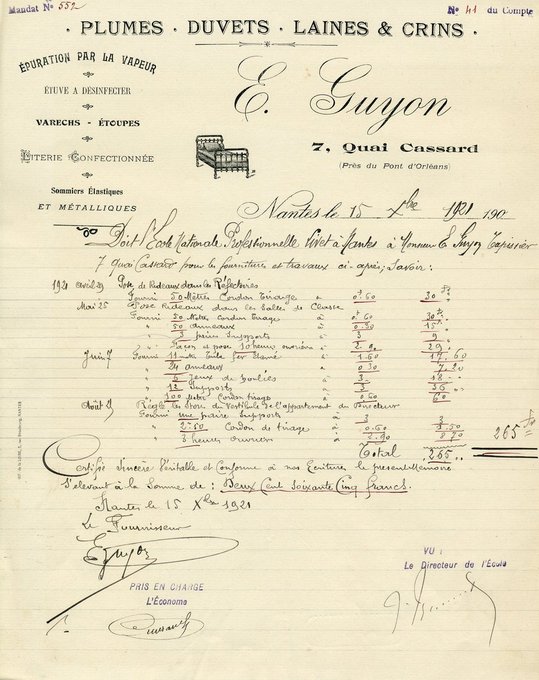 Mandat No 552
No 41 du Compte
PLUMES · DUVETS · LAINES & CRINS ·
ÉPURATION PAR LA VAPEUR
ÉTUVE A DÉSINFECTER
VARECHS - ÉTOUPES
LITERIE CONFECTIONNÉE
Sommiers Élastiques
ET MÉTALLIQUES
E. Guyon
7, Quai Cassard
(Près du Pont d'Orléans)
Nantes le 15 Xbre 1921 190
Doit l'Ecole Nationale Professionnelle Livet à Nantes à Monsieur E Guyon Tapissier
7 quai Cassard pour les fournitures et travaux ci-après, Savoir :
1921 Avril 29 Pose de Rideaux dans les Réfectoires
Fourni 50 Mètres Cordon tirage à 0.60 30
Mai 25 Pose Rideaux dans les Salles de Classe
Fourni 50 Mètres Cordon tirage à 0.60 30
" 50 anneaux à 0.30 15
" 3 paires Supports à 3 9
" façon et pose 10 heures à 2.90 29
Juin 7 Fourni 11 à 1.60 17.60
" 24 anneaux à 0.30 7.20
" 6 Jeux de poulies à 3 18
" 12 Supports à 3 36
" 100 Mètres Cordon tirage à 0.60 60
Août Réglé le Store du Vestibule de l'appartement du Directeur
Fourni une paire Supports à 3
" Cordon de tirage à
" 3 heures ouvrier à 2.90 8.70
Total 265 265
Certifié Sincère Véritable et Conforme à nos Ecritures le présent Mémoire
S'elevant à la Somme de : Deux Cent Soixante Cinq francs.
Nantes le 15 Xbre 1921
Le Fournisseur
E Guyon
PRIS EN CHARGE
L'Économe
VU :
Le Directeur de l'École